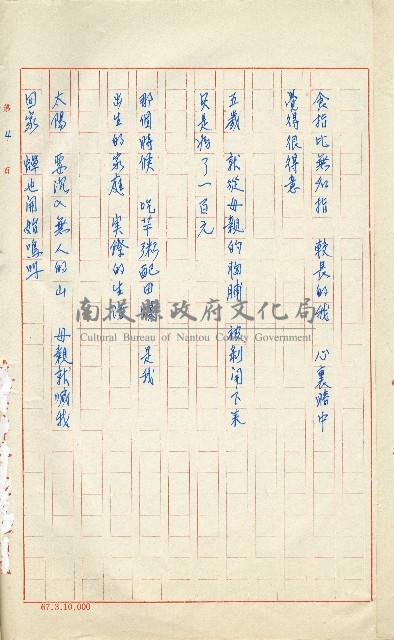 食指比無知指 較長的我 心裏暗中
覺得很得意
五歲 就從母親的胸脯 被剝開下來
只是為了一百元
那個時候 吃芋粥配田 是我
出生的家庭 實際的生
太陽 要沉入無人的山 母親就喊我
回家 蟬也開始鳴叫
第 4 頁
南投縣政府文化局
Cultural Bureau of Nantou County Government
67.3.10,000